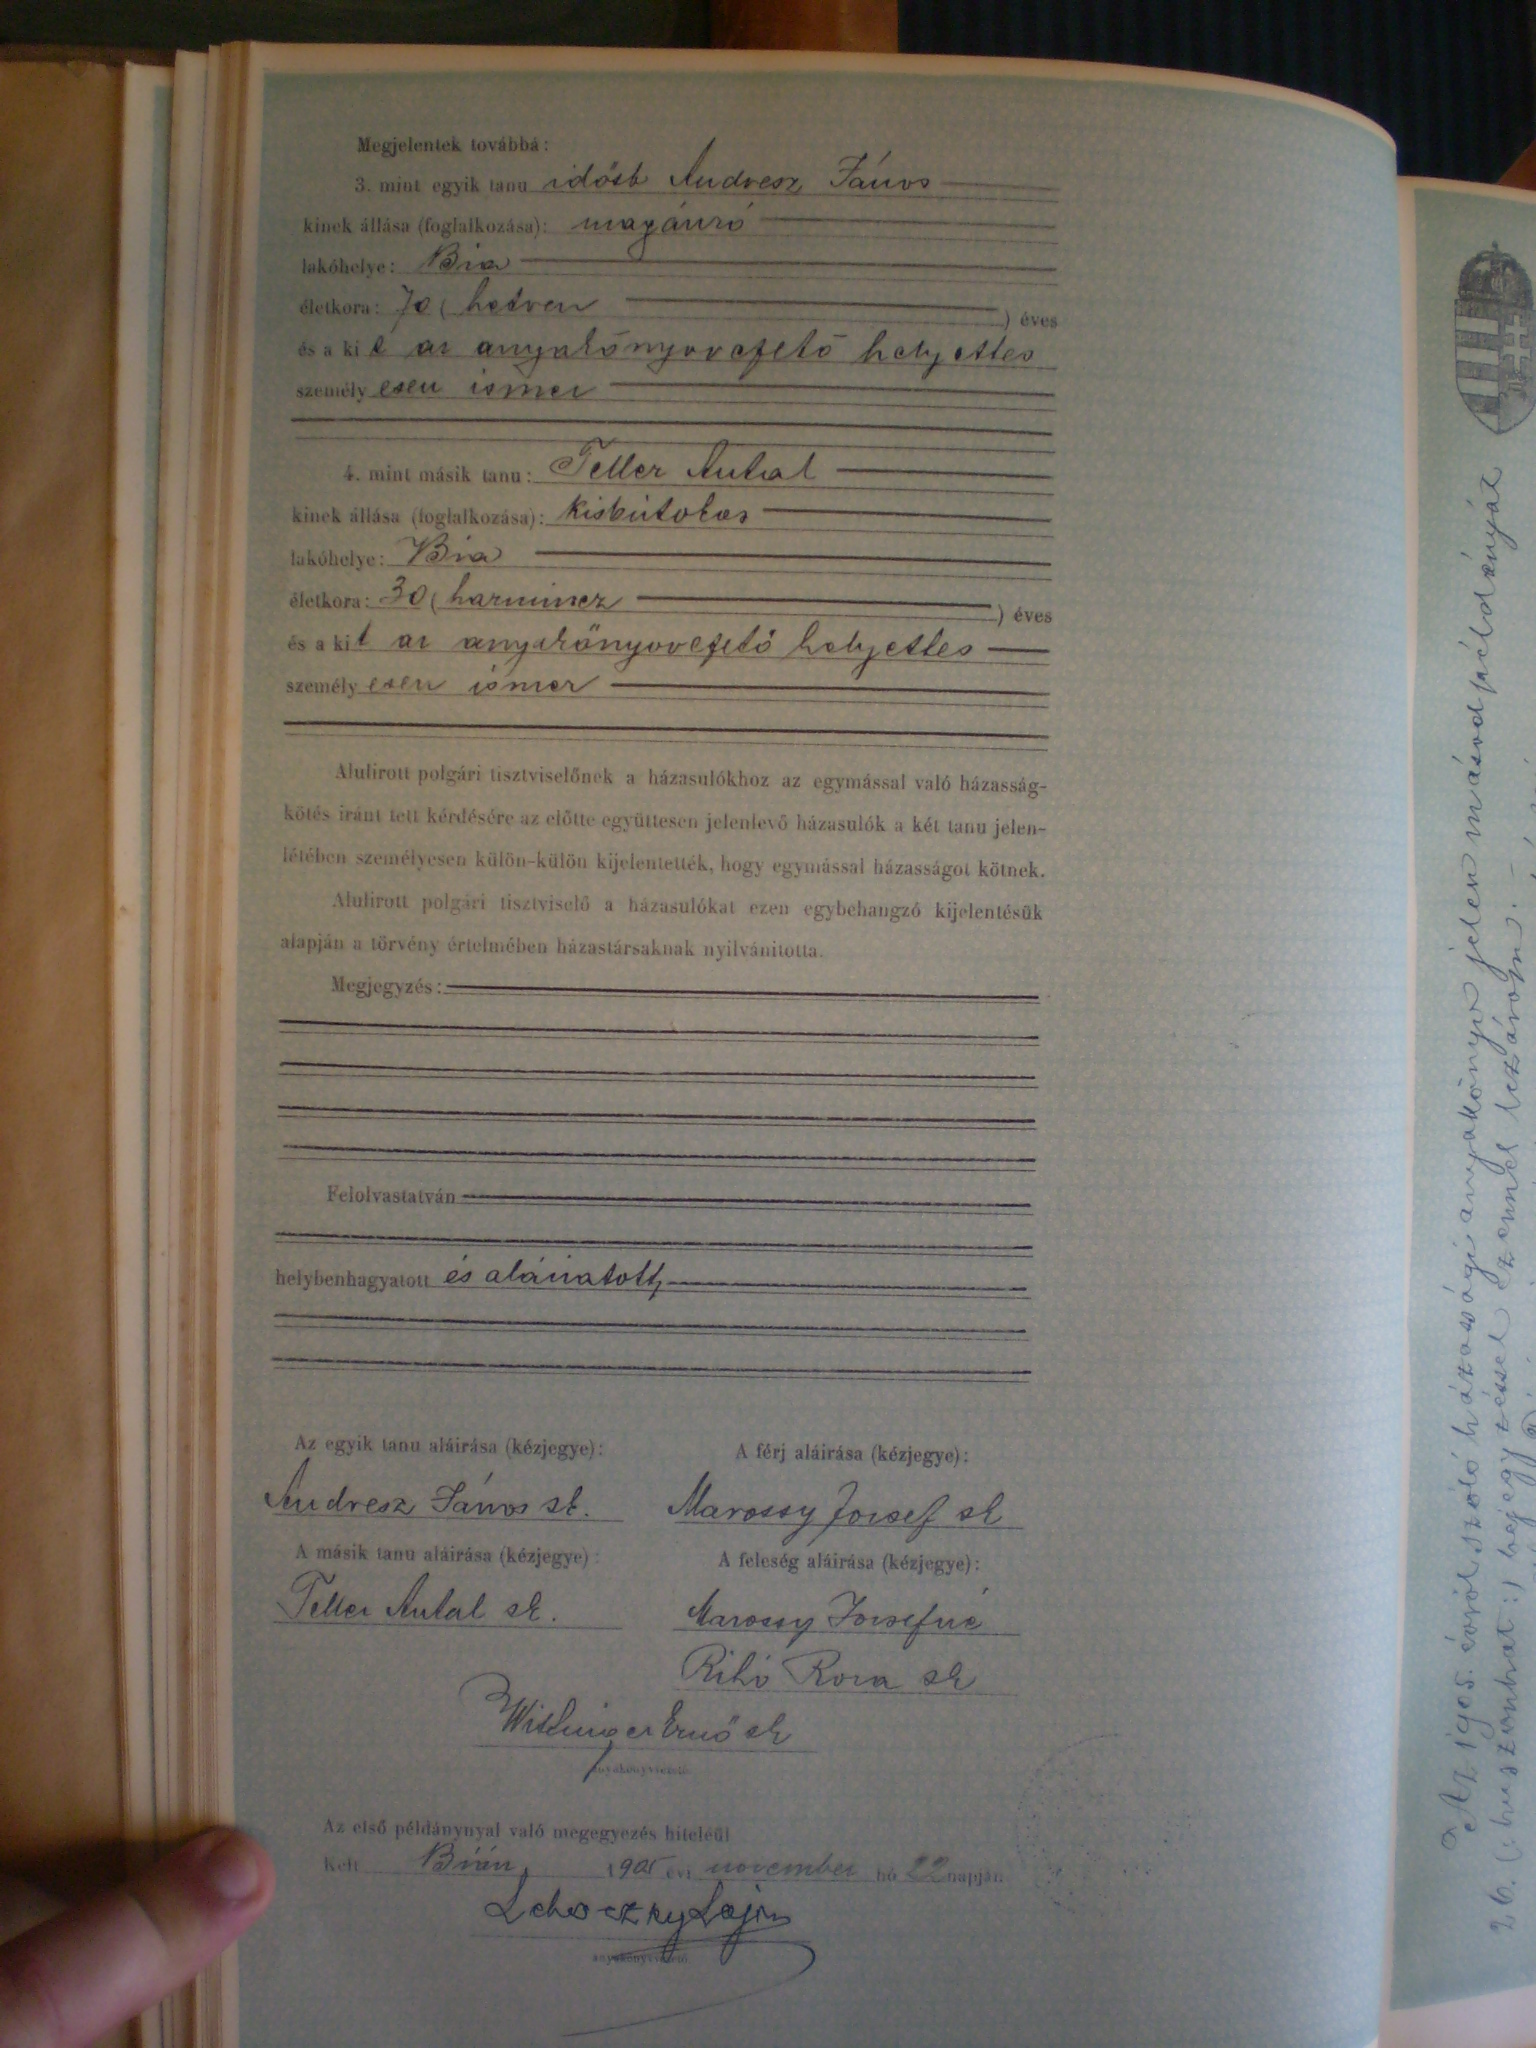 Megjelentek továbbá:
3. mint egyik tanu idősb Andresz János
kinek állása (foglalkozása): magánzó
lakóhelye: Bia
életkora: 70 (hetven ) éves
és a kit az anyakönyvvezető helyettes
személyesen ismer
4. mint másik tanu: Teller Antal
kinek állása (foglalkozása): kisbirtokos
lakóhelye: Bia
életkora: 30 (harmincz ) éves
és a kit az anyakönyvvezető helyettes
személyesen ismer
Alulirott polgári tisztviselőnek a házasulókhoz az egymással való házasság-
kötés iránt tett kérdésére az előtte együttesen jelenlevő házasulók a két tanu jelen-
létében személyesen külön-külön kijelentették, hogy egymással házasságot kötnek.
Alulirott polgári tisztviselő a házasulókat ezen egybehangzó kijelentésük
alapján a törvény értelmében házastársaknak nyilvánitotta.
Megjegyzés:
Felolvastatván
helybenhagyatott és aláiratott,
Az egyik tanu aláirása (kézjegye):
Andresz János sk.
A férj aláirása (kézjegye):
Marossy József sk
A másik tanu aláirása (kézjegye):
Teller Antal sk.
A feleség aláirása (kézjegye):
Marossy Józsefné
Rihó Roza sk
Wittinger Ernő sk
anyakönyvvezető
Az első példánynyal való megegyezés hiteléül
Kelt Bián, 1905 évi november hó 22 napján
Lehoczky Lajos
anyakönyvvezető
Az 1905. évről szóló házassági anyakönyv jelen másodpéldányát
26. (: huszonhat :) bejegyzéssel ezennel lezárom. –